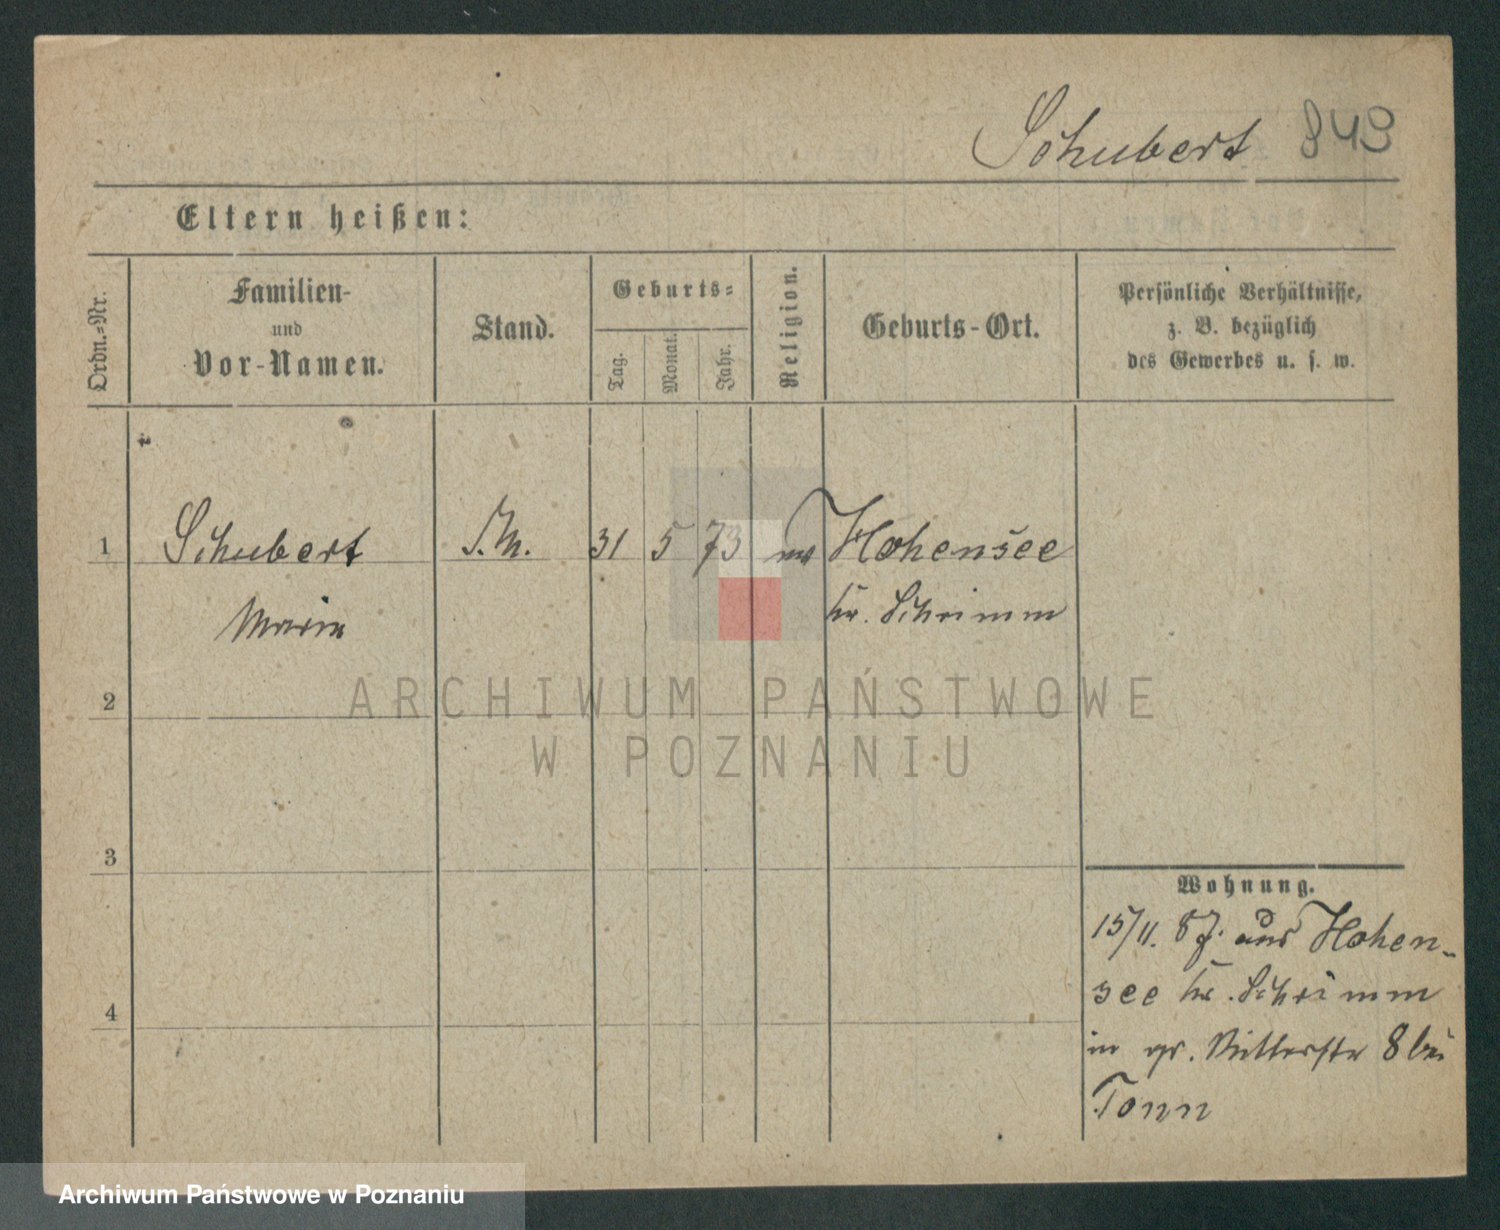 Schubert 849
Eltern heißen:
Ordn.-Nr.
Familien-
und
Vor-Namen.
Stand.
Geburts-
Tag.
Monat.
Jahr.
Religion.
Geburts-Ort.
Persönliche Verhältnisse,
z. B. bezüglich
des Gewerbes u. s. w.
1 Schubert 31 5 73 Hohensee
Maria Kr. Schrimm
2
3
4
Wohnung.
15/11. 87. aus Hohen-
see Kr. Schrimm
in gr. Ritterstr 8 bei
Tonn
ARCHIWUM PAŃSTWOWE
W POZNANIU
Archiwum Państwowe w Poznaniu